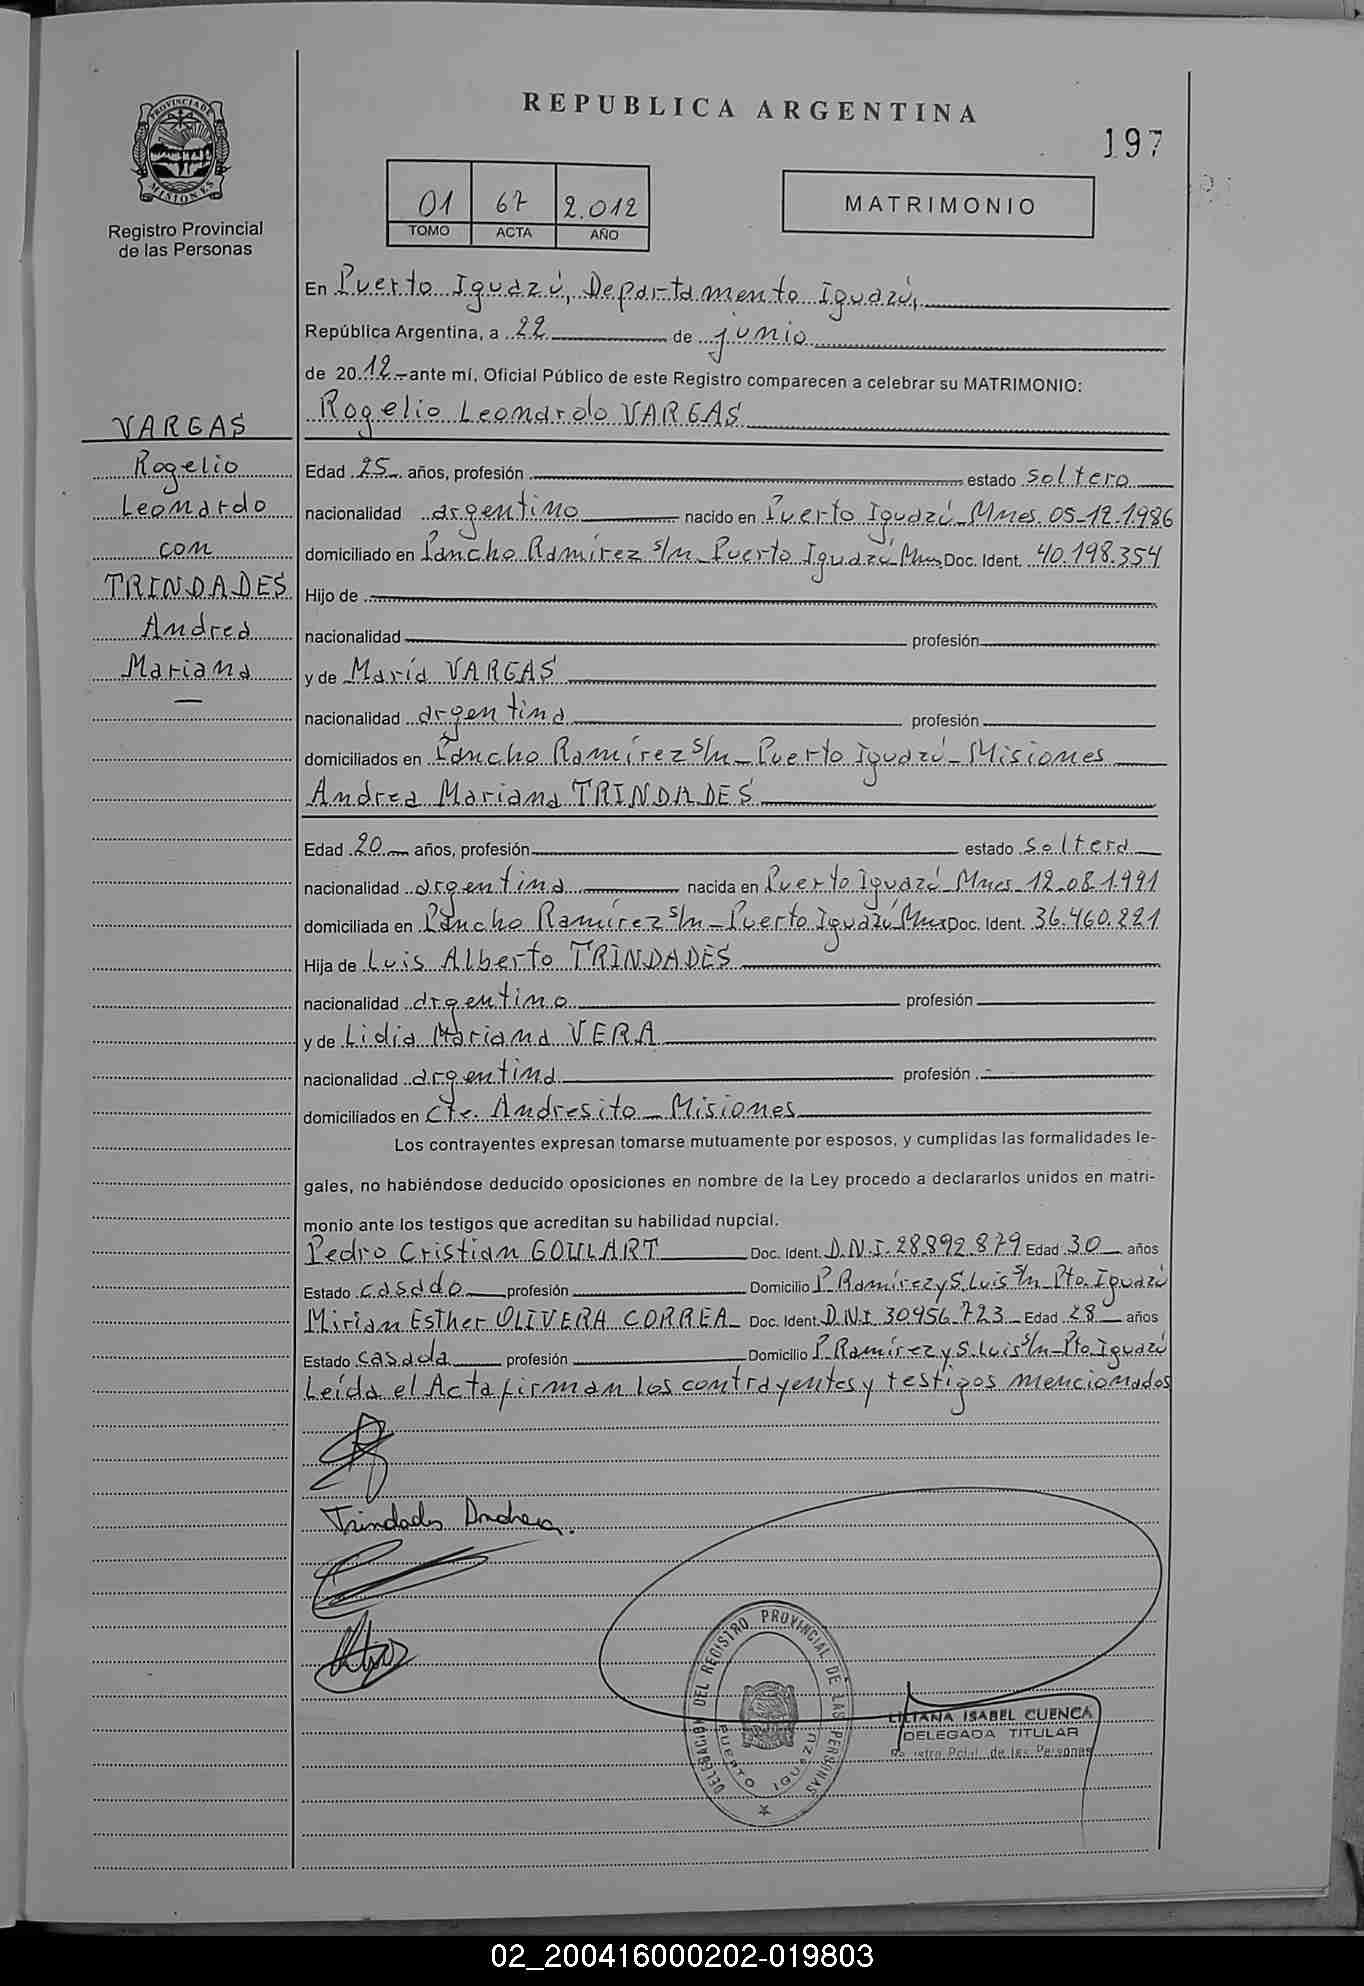 REPUBLICA ARGENTINA
197
PROVINCIA DE MISIONES
Registro Provincial
de las Personas
01 67 2.012
TOMO ACTA AÑO
MATRIMONIO
En Puerto Iguazú, Departamento Iguazú,
República Argentina, a 22 de junio
de 2012 ante mí, Oficial Público de este Registro comparecen a celebrar su MATRIMONIO:
Rogelio Leonardo VARGAS
VARGAS
Rogelio
Leonardo
con
TRINDADES
Andrea
Mariana
Edad 25 años, profesión estado soltero
nacionalidad argentino nacido en Puerto Iguazú Mnes. 05-12-1986
domiciliado en Pancho Ramírez s/n Puerto Iguazú Mnes Doc. Ident. 40.198.354
Hijo de
nacionalidad profesión
y de María VARGAS
nacionalidad argentina profesión
domiciliados en Pancho Ramírez s/n - Puerto Iguazú - Misiones
Andrea Mariana TRINDADES
Edad 20 años, profesión estado soltera
nacionalidad argentina nacida en Puerto Iguazú Mnes. 12-08-1991
domiciliada en Pancho Ramírez s/n - Puerto Iguazú Mnes Doc. Ident. 36.460.221
Hija de Luis Alberto TRINDADES
nacionalidad argentino profesión
y de Lidia Mariana VERA
nacionalidad argentina profesión
domiciliados en Cte. Andresito - Misiones
Los contrayentes expresan tomarse mutuamente por esposos, y cumplidas las formalidades le-
gales, no habiéndose deducido oposiciones en nombre de la Ley procedo a declararlos unidos en matri-
monio ante los testigos que acreditan su habilidad nupcial.
Pedro Cristian GOULART Doc. Ident. D.N.I. 28.892.879 Edad 30 años
Estado casado profesión Domicilio P. Ramírez y S. Luis s/n Pto. Iguazú
Mirian Esther OLIVERA CORREA Doc. Ident. D.N.I. 30956.723 Edad 28 años
Estado casada profesión Domicilio P. Ramírez y S. Luis s/n - Pto. Iguazú
Leída el Acta firman los contrayentes y testigos mencionados
Trindades Andrea.
DELEGACIÓN DEL REGISTRO PROVINCIAL DE LAS PERSONAS
PUERTO IGUAZU
LILIANA ISABEL CUENCA
DELEGADA TITULAR
de las Personas
02_200416000202-019803